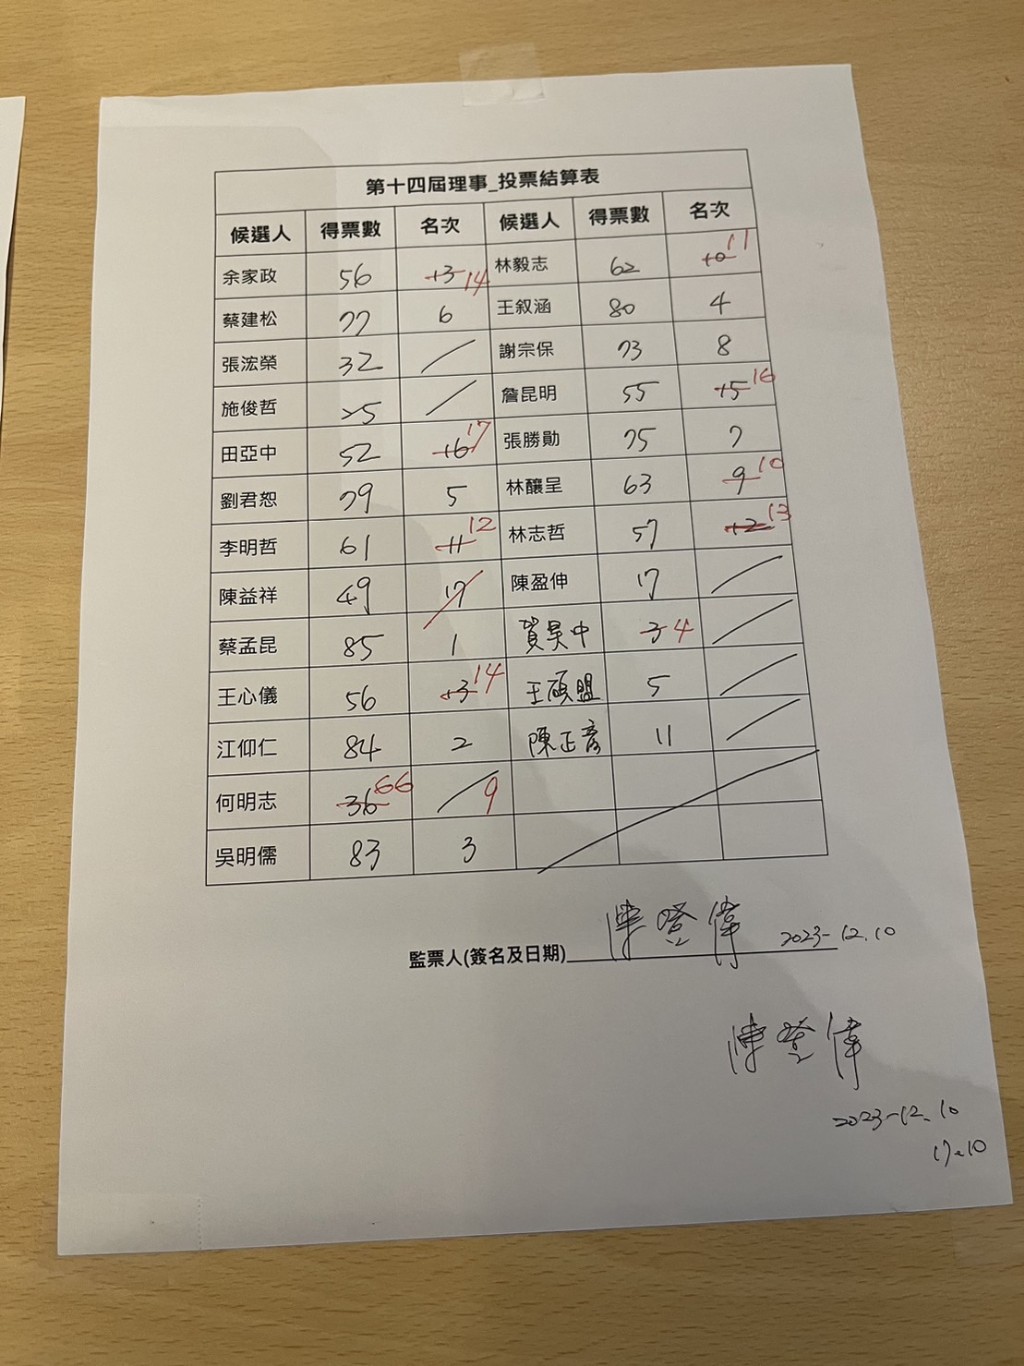 第十四屆理事_投票結算表
候選人 得票數 名次 候選人 得票數 名次
余家政 56 13 14 林毅志 62 10 11
蔡建松 77 6 王叙涵 80 4
張浤榮 32 / 謝宗保 73 8
施俊哲 25 / 詹昆明 55 15 16
田亞中 52 16 17 張勝勛 75 7
劉君恕 79 5 林釀呈 63 9 10
李明哲 61 11 12 林志哲 57 12 13
陳益祥 49 17 陳盈伸 17 /
蔡孟昆 85 1 賀昊中 3 4 /
王心儀 56 13 14 王碩盟 5 /
江仰仁 84 2 陳正彥 11 /
何明志 36 66 / 9
吳明儒 83 3
監票人(簽名及日期) 陳登偉 2023-12.10
陳登偉
2023-12.10
17.10